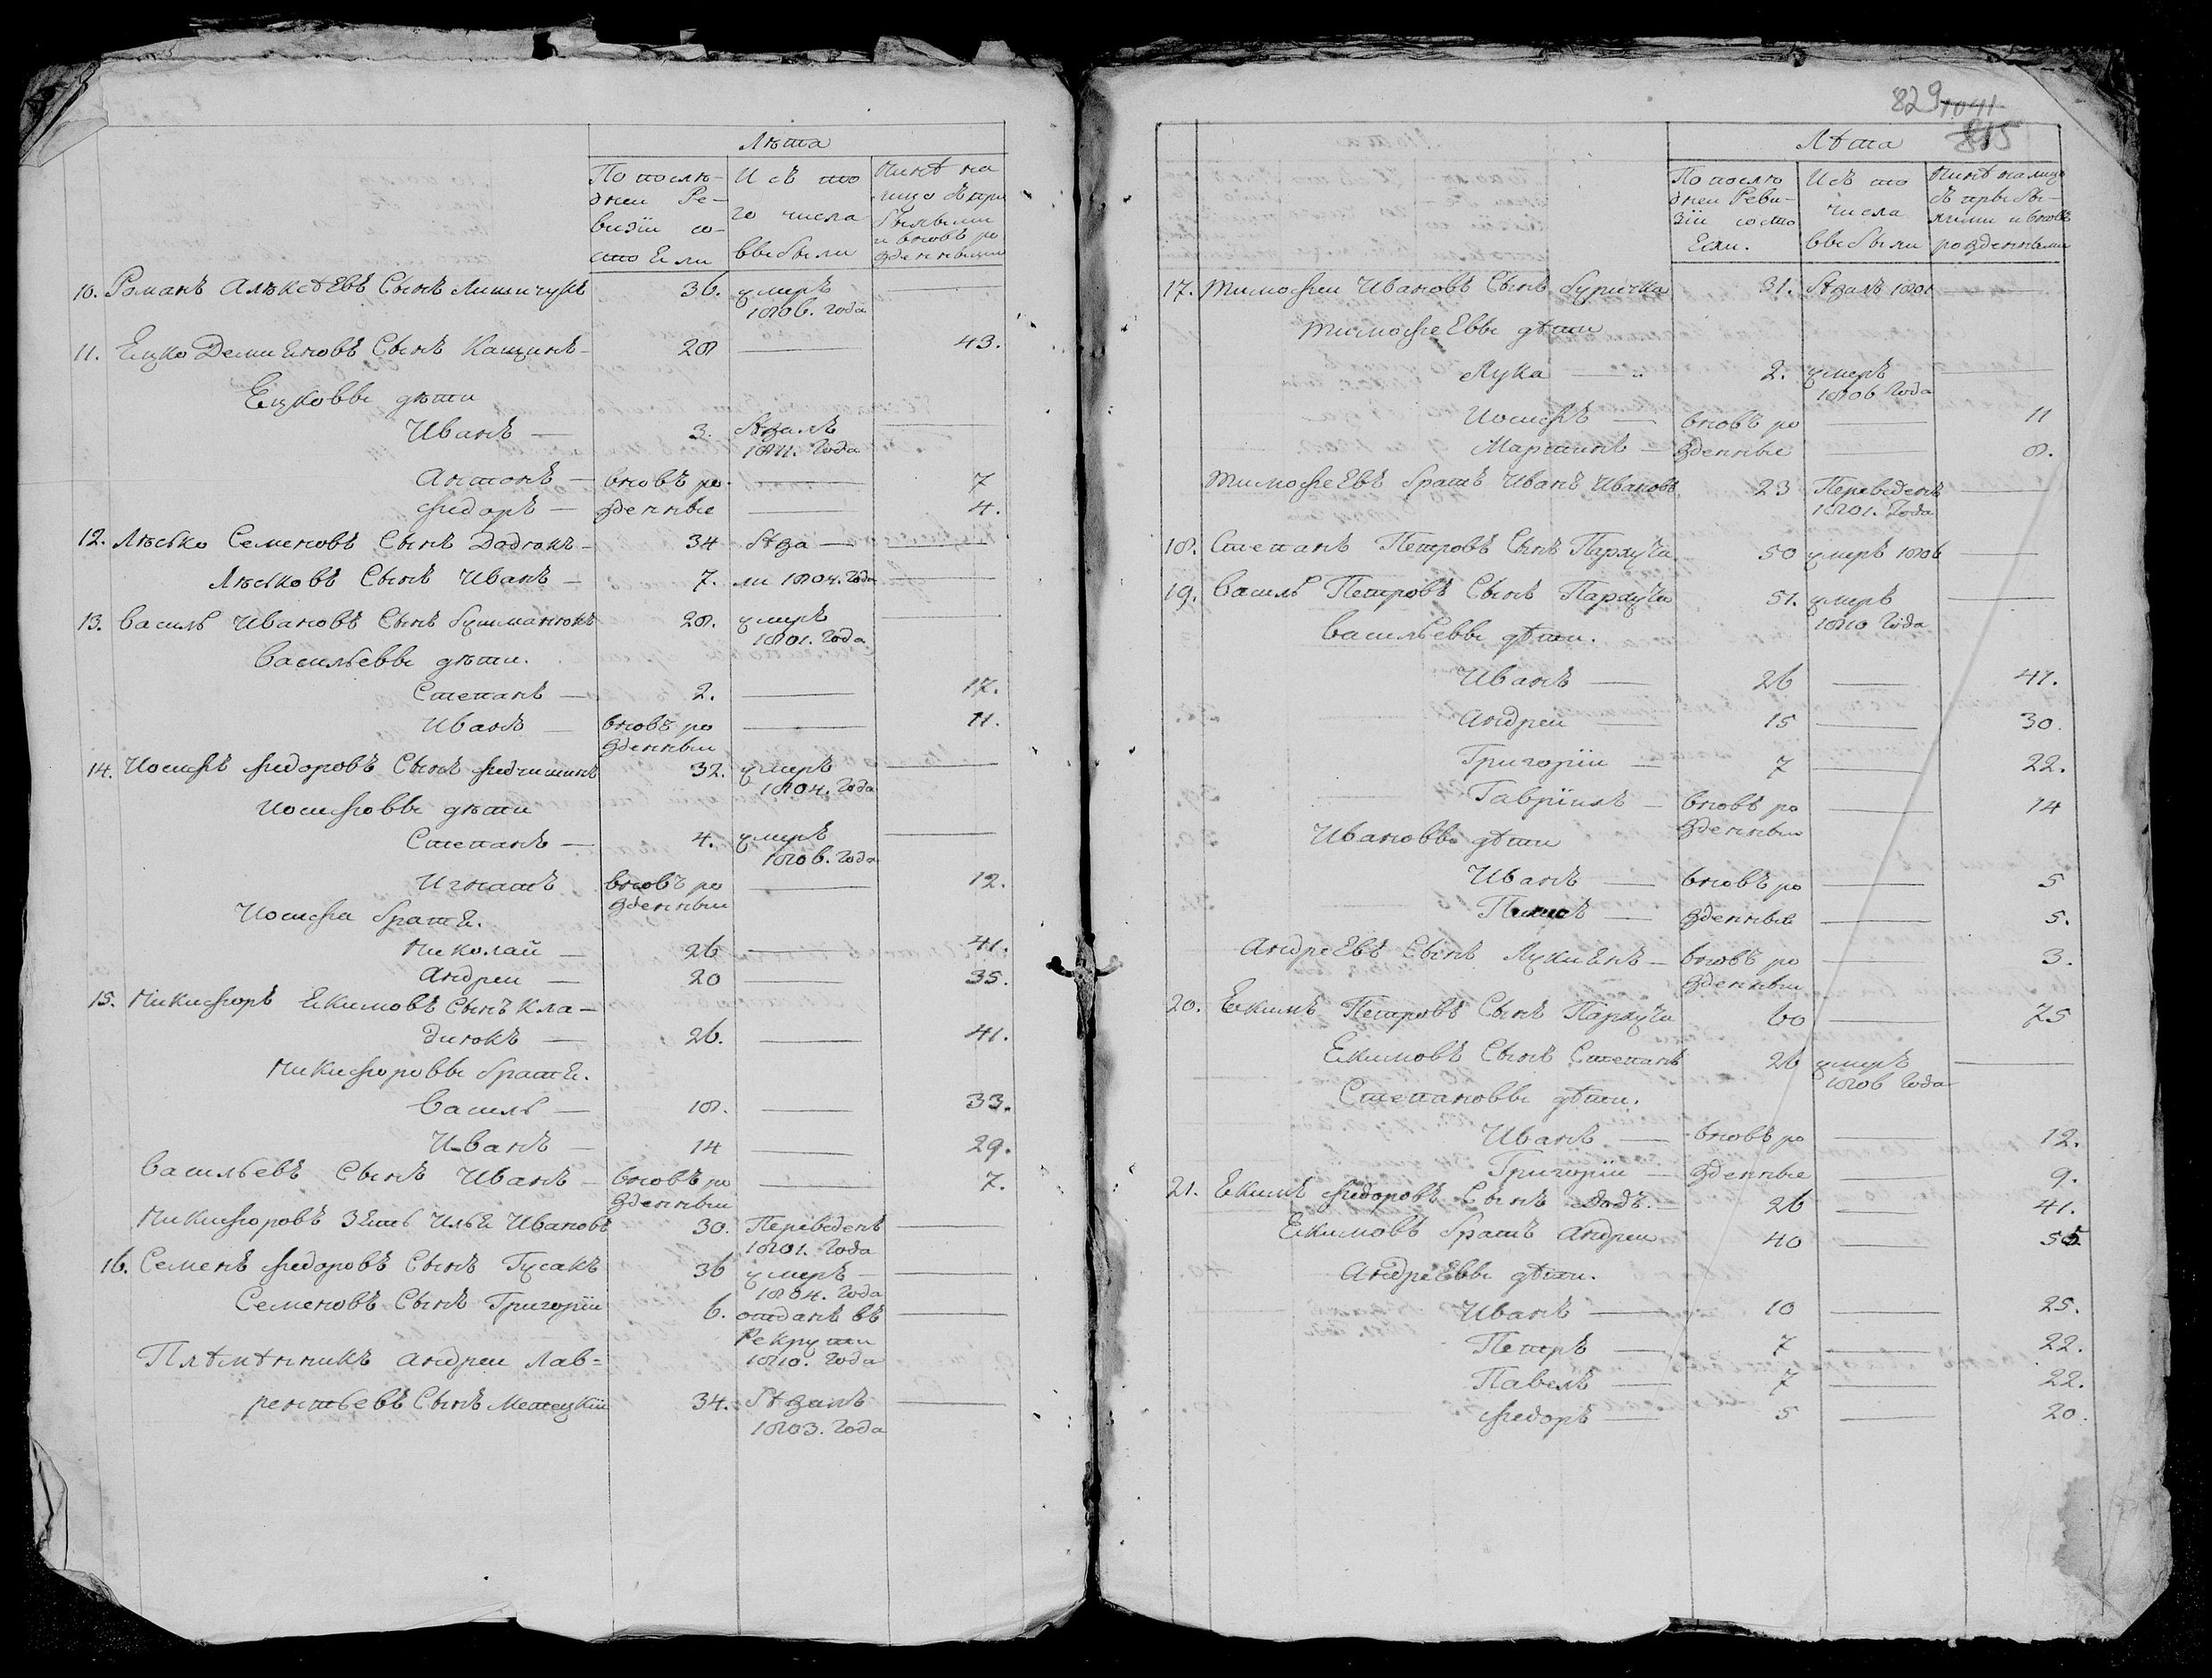 Лѣта
По послѣ-
дней Ре-
визіи со-
стоЕли
И съ то
го числа
выбыли
Нинѣ на
лицо съ при
былыми
и вновь ро
жденными
10. Романъ АлѣксѣЕвъ Сынъ Лишичукъ 36. умеръ
1806. Года
11. Ецко ДемиЕновъ Сынъ Кащинъ 28 43.
Ецковы дѣти
Иванъ 3. бѣжалъ
1811. Года
Антонъ вновь ро 7
Федоръ жденные 4.
12. Лѣсько Семеновъ Сынъ Дадюкъ 34 бѣжа
Лѣськовъ Сынъ Иванъ 7. ли 1804. Года
13. Василь Ивановъ Сынъ 28. умеръ
1801. Года
Васильевы дѣти.
Степанъ 2. 17.
Иванъ вновь ро 11.
жденный
14. Иосифъ Федоровъ Сынъ Федчишинъ 32. умеръ
1804. Года
Иосифовы дѣти
Степанъ 4. умеръ
1806. Года
Игнатъ вновь ро 12.
жденный
Иосифа братЕ.
Николай 26 41.
Андреи 20 35.
15. Никифоръ Екимовъ Сынъ Кла-
дюкъ 26. 41.
Никифоровы братЕ.
Василь 18. 33.
Иванъ 14 29.
Васильевъ Сынъ Иванъ вновь ро 7.
жденный
Никифоровъ зЕть Илья Ивановъ 30. Переведенъ
1801. Года
16. Семенъ Федоровъ Сынъ Гусакъ 36 умеръ
1804. Года
Семеновъ Сынъ Григорій 6. отданъ въ
Рекрути
1810. Года
Плѣмѣнникъ Андреи Лав=
рентьевъ Сынъ 34. бѣжалъ
1803. Года
829 1041
815
Лѣта
По послѣ
дней Реви-
зіи состо
Ели.
И съ то
числа
выбыли
Нинѣ на лицо
съ прибы-
лими и вновь
рожденными
17. Тимофеи Ивановъ Сынъ Буричка 31. бѣжалъ 1801
ТимофеЕвы дѣти
Лука 2. умеръ
1806 Года
Иосифъ вновь ро 11
Мартинъ жденные 8.
ТимофеЕвъ братъ Иванъ Ивановъ 23 Переведенъ
1801. Года
18. Степанъ Петровъ Сынъ 50 умеръ 1806
19. Василь Петровъ Сынъ 51. умеръ
1810 Года
Васильевы дѣти.
Иванъ 26 41.
Андреи 15 30.
Григорій 7 22.
Гавріилъ вновь ро 14
жденный
Ивановы дѣти
Иванъ вновь ро 5
жденные 5.
АндреЕвъ Сынъ ЛукиЕнъ вновь ро 3.
жденный
20. Екимъ Петровъ Сынъ 60 75
Екимовъ Сынъ Степанъ 26 умеръ
1806 Года
Степановы дѣти.
Иванъ вновь ро 12.
Григорій жденные 9.
21. Екимъ Федоровъ Сынъ Дадъ. 26 41.
Екимовъ братъ Андреи 40 55
АндреЕвы дѣти.
Иванъ 10 25.
Петръ 7 22.
Павелъ 7 22.
Федоръ 5 20.